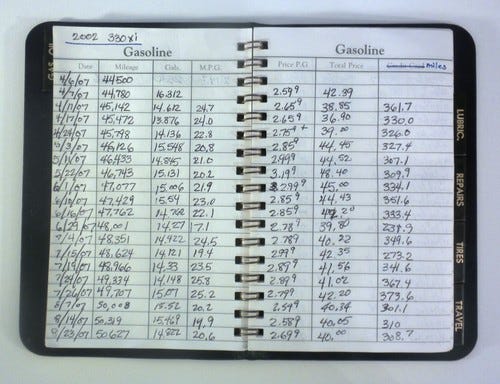 2002 330xi
Gasoline Gasoline
Date Mileage Gals. M.P.G. Price P.G. Total Price Credit Card miles
4/6/07 44500
4/7/07 44,780 16.312 2.59⁹ 42.39
4/11/07 45,142 14.612 24.7 2.65⁹ 38.85 361.7
4/17/07 45,472 13.876 24.0 2.65⁹ 36.90 330.0
4/24/07 45,798 14.136 22.8 39.00 326.0
5/3/07 46,126 15.548 20.8 2.85⁹ 44.45 327.4
5/11/07 46,433 14.845 21.0 2.99⁹ 44.52 307.1
5/22/07 46,743 15.131 20.2 3.19⁹ 48.40 309.9
6/1/07 47,077 15.006 21.9 2.99⁹ 45.00 334.1
6/10/07 47,429 15.54 23.0 2.85⁹ 44.43 351.6
6/16/07 47,762 22.1 2.85⁹ 333.4
6/29/07 48,001 14.27 17.1 2.78⁹ 39.80 238.9
7/4/07 48,351 14.422 24.5 2.789 40.22 349.6
7/15/07 48,624 14.121 19.4 2.99⁹ 42.35 273.2
7/19/07 48,966 14.33 23.5 2.89⁹ 41.56 341.6
7/24/07 49,334 14.148 25.8 2.89⁹ 41.02 367.4
7/26/07 49,707 25.2 2.79⁹ 42.20 373.6
8/7/07 50,008 15.52 20.2 40.34 301.1
8/14/07 50,319 15.469 19.9 2.589 40.05 310
8/23/07 50,627 14.822 20.6 2.69⁹ 40.00 308.7
GAS, OIL
LUBRIC.
REPAIRS
TIRES
TRAVEL